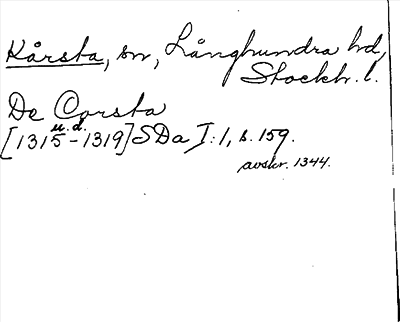 Kårsta, sn, Långhundra hd,
Stockh. l.
De Corsta
u.d.
[1315-1319] SDa I:1, s. 159.
avskr. 1344.